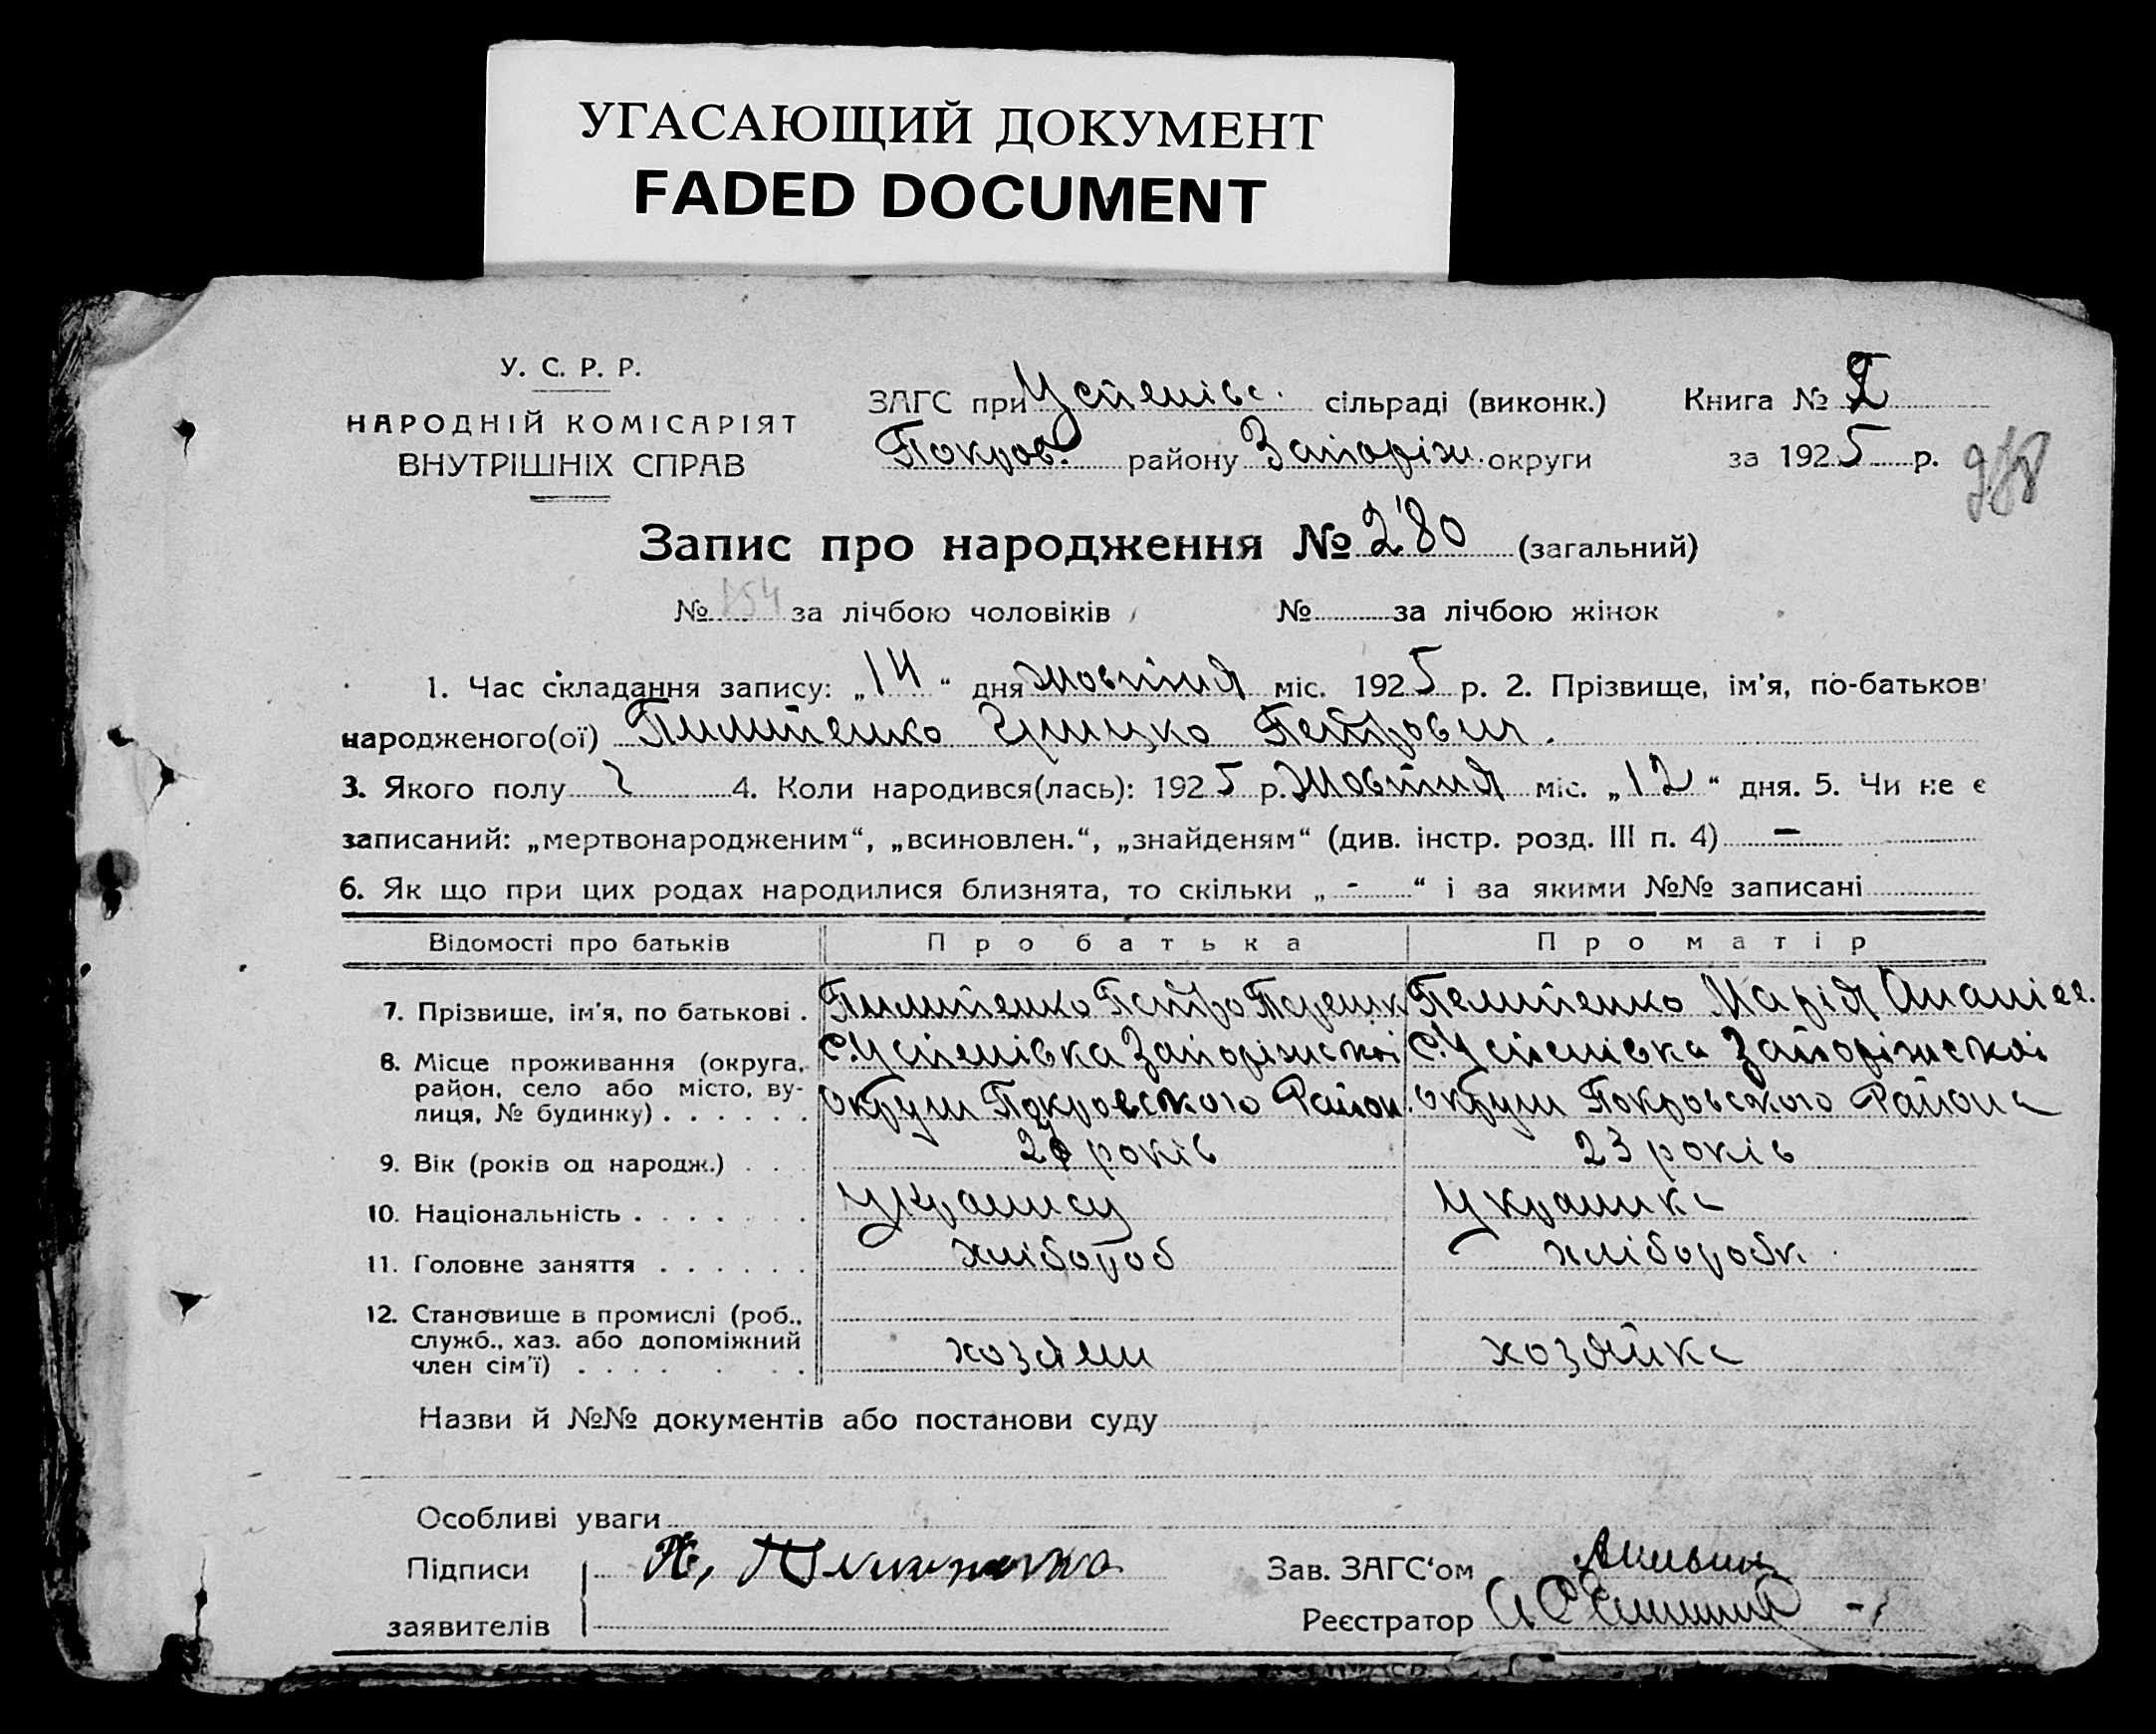 УГАСАЮЩИЙ ДОКУМЕНТ
FADED DOCUMENT
У. С. Р. Р.
НАРОДНІЙ КОМІСАРІЯТ
ВНУТРІШНІХ СПРАВ
ЗАГС при Успенівс. сільраді (виконк.)
Покров. району Запоріж. округи
Книга №
за 1925 р.
Запис про народження № 280 (загальний)
№ 154 за лічбою чоловіків
№ за лічбою жінок
1. Час складання запису: „14“ дня жовтня міс. 1925 р. 2. Прізвище, ім'я, по-батьков
народженого(ої) Пилипенко Грицко Петрович.
3. Якого полу ч 4. Коли народився(лась): 1925 р. Жовтня міс. „12“ дня. 5. Чи не є
записаний: „мертвонародженим“, „всиновлен.“, „знайденям“ (див. інстр. розд. III п. 4) —
6. Як що при цих родах народилися близнята, то скільки „-“ і за якими №№ записані
Відомості про батьків Про батька Про матір
7. Прізвище, ім'я, по батькові . Пилипенко Петро Пелипенко Марія Ананіев.
8. Місце проживання (округа, район, село або місто, вулиця, № будинку) . . . . . .
С. Успенівка Запоріжскоі округи Покровского Район.
С. Успенівка Запоріжскоі округи Покровского Района
9. Вік (років од народж.) . . . років 23 років
10. Національність . . . . . . . Українец Українка
11. Головне заняття . . . . . . хлібороб хліборобк.
12. Становище в промислі (роб., служб., хаз. або допоміжний член сім'ї) . . . . . . .
хозяин хозяйка
Назви й №№ документів або постанови суду
Особливі уваги
Підписи
заявителів
Зав. ЗАГС'ом
Реєстратор